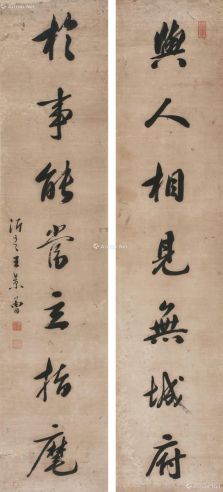 與人相見無城府
於事能當立指麾
王景曾